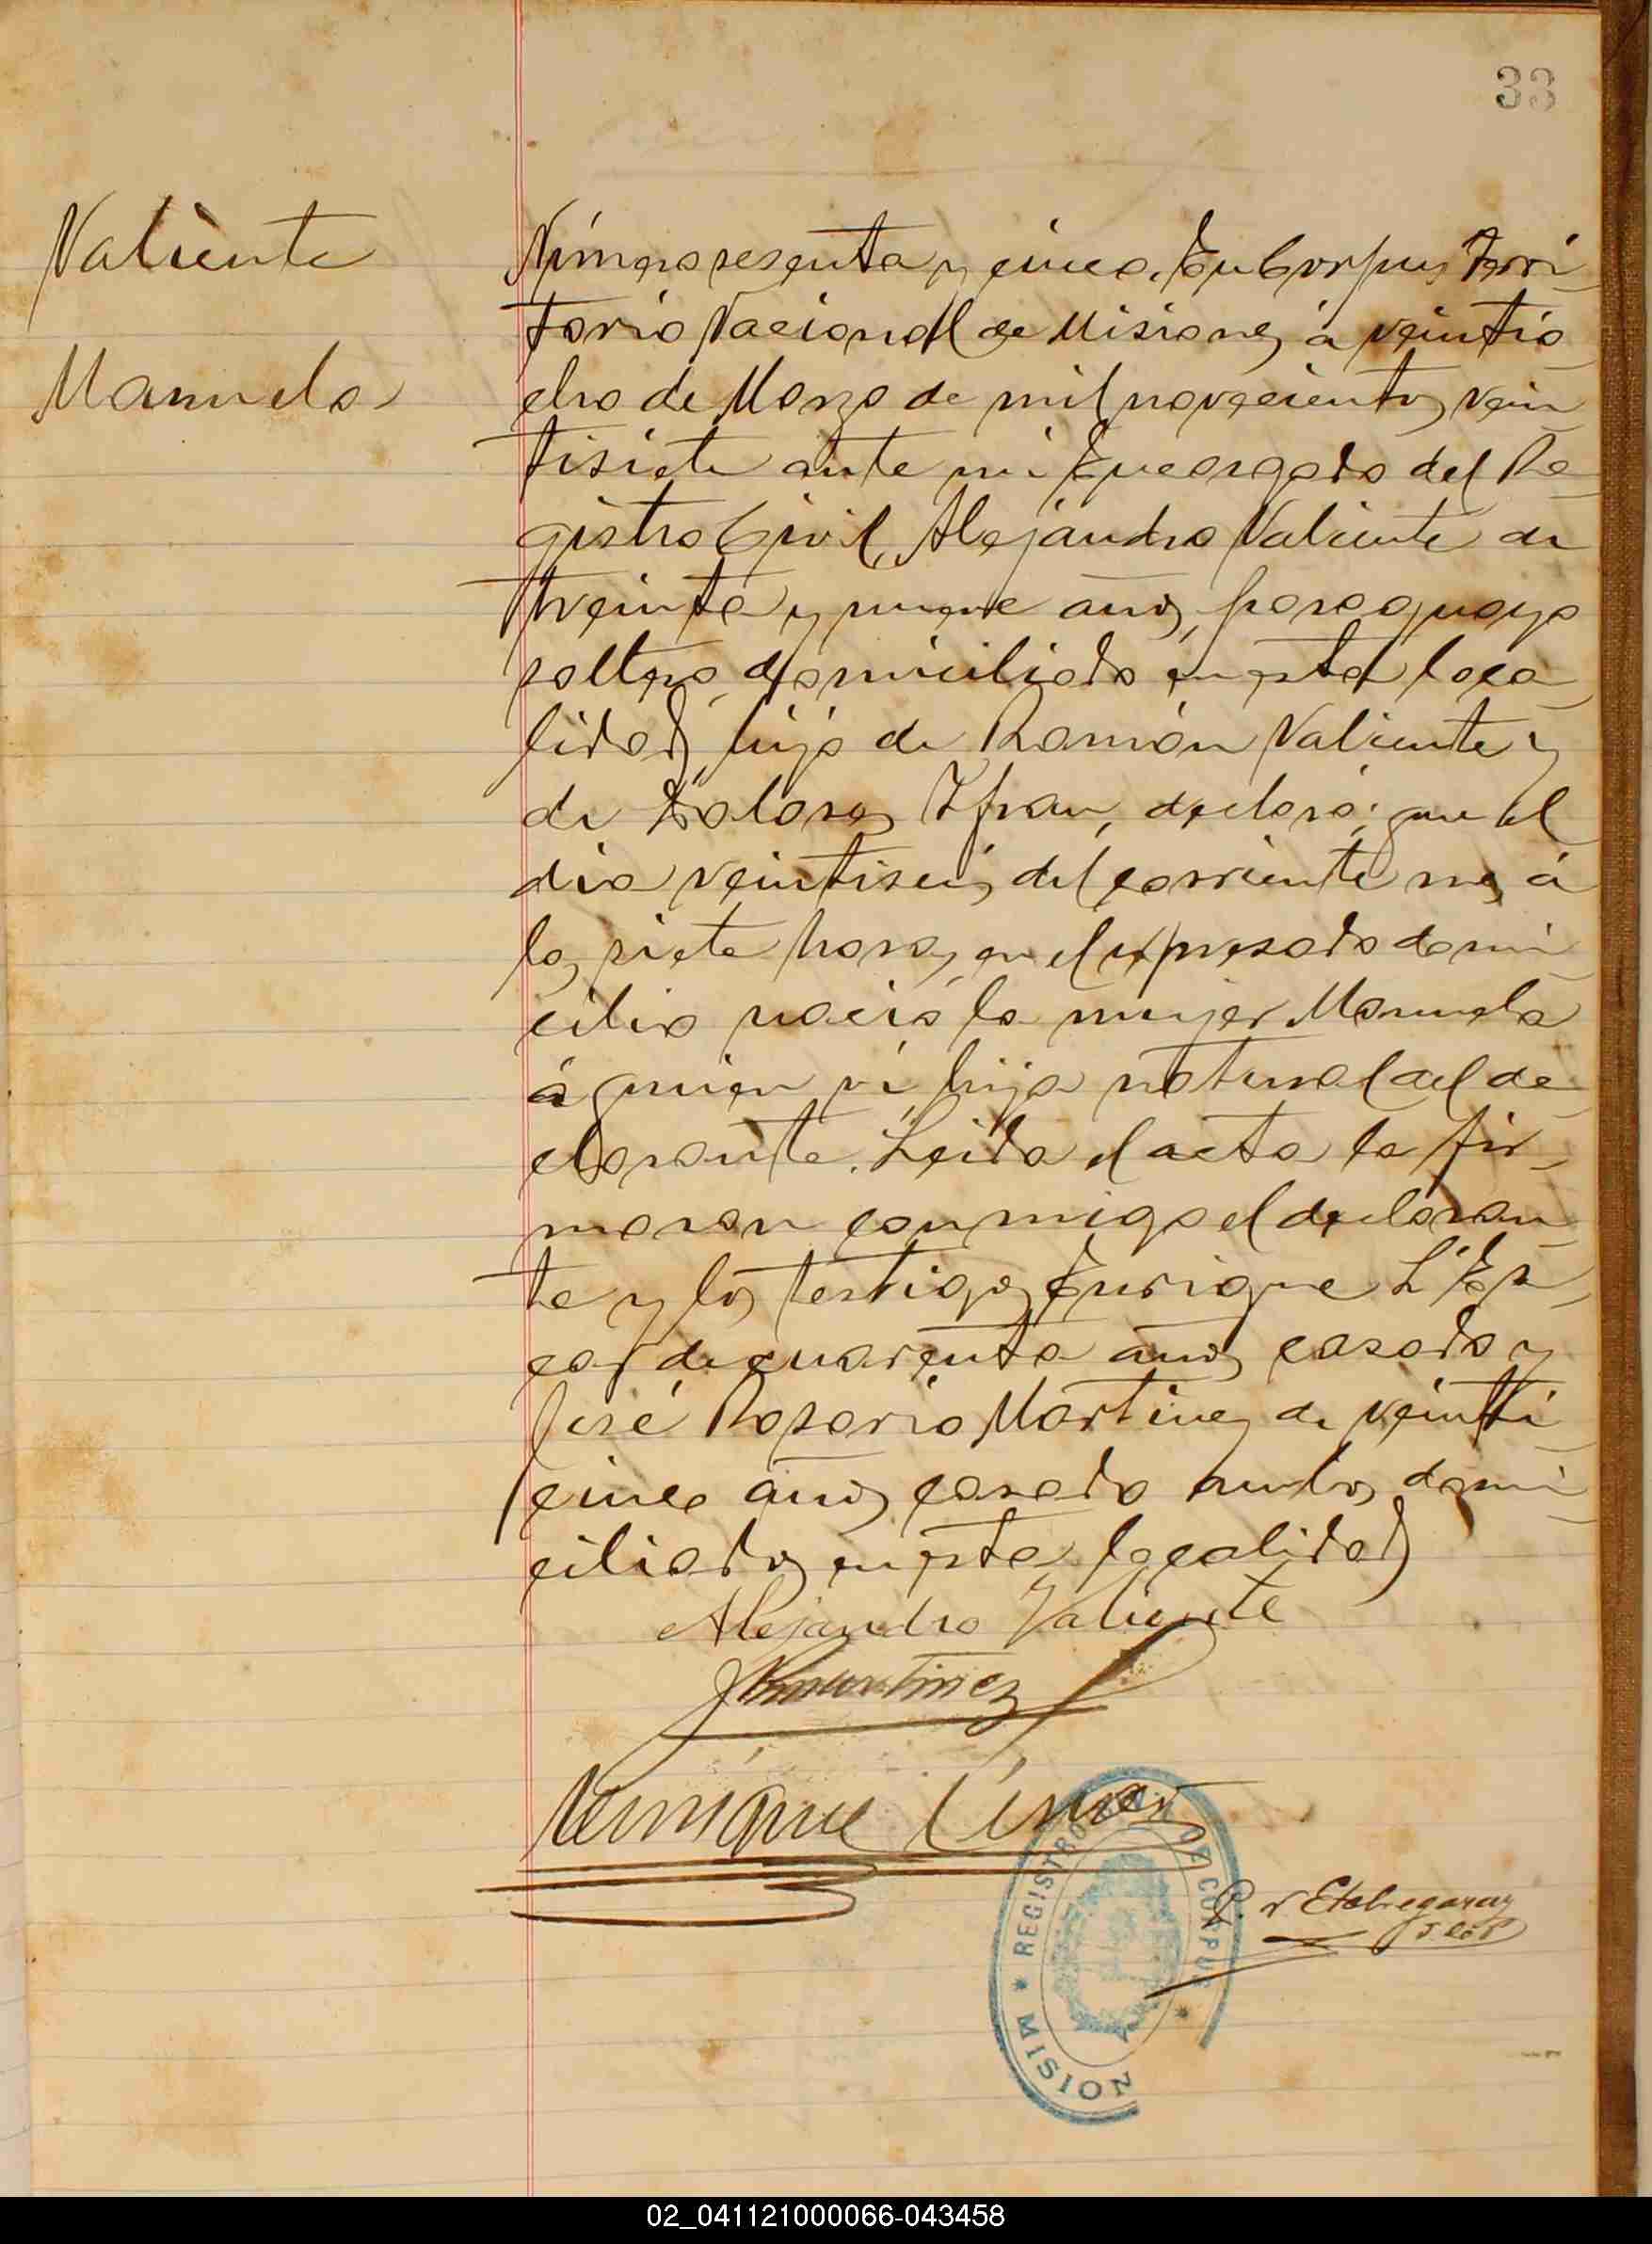 33
Valiente
Manuela
Número sesenta y cinco. En Corpus Terri-
torio Nacional de Misiones á veintio
cho de Marzo de mil novecientos vein
tisiete ante mi Encargado del Re
gistro Civil, Alejandro Valiente de
treinta y nueve años, paraguayo
soltero, domiciliado en esta loca
lidad, hijo de Ramón Valiente y
de Dolores Ifran, declaró: que el
dia veintiseis del corriente mes á
las siete horas, en el expresado domi
cilio nació la mujer Manuela
á quien ví, hija natural del de
clarante. Leida el acta la fir-
maron conmigo el declaran
te y los testigos, Enrique
de cuarenta años casado y
José Rosario Martinez de veinti
cinco años casado ambos domi
ciliados en esta localidad
Alejandro Valiente
JRMartinez
REGISTRO CIVIL DE CORPUS
Etchegaray
* MISION
02_041121000066-043458